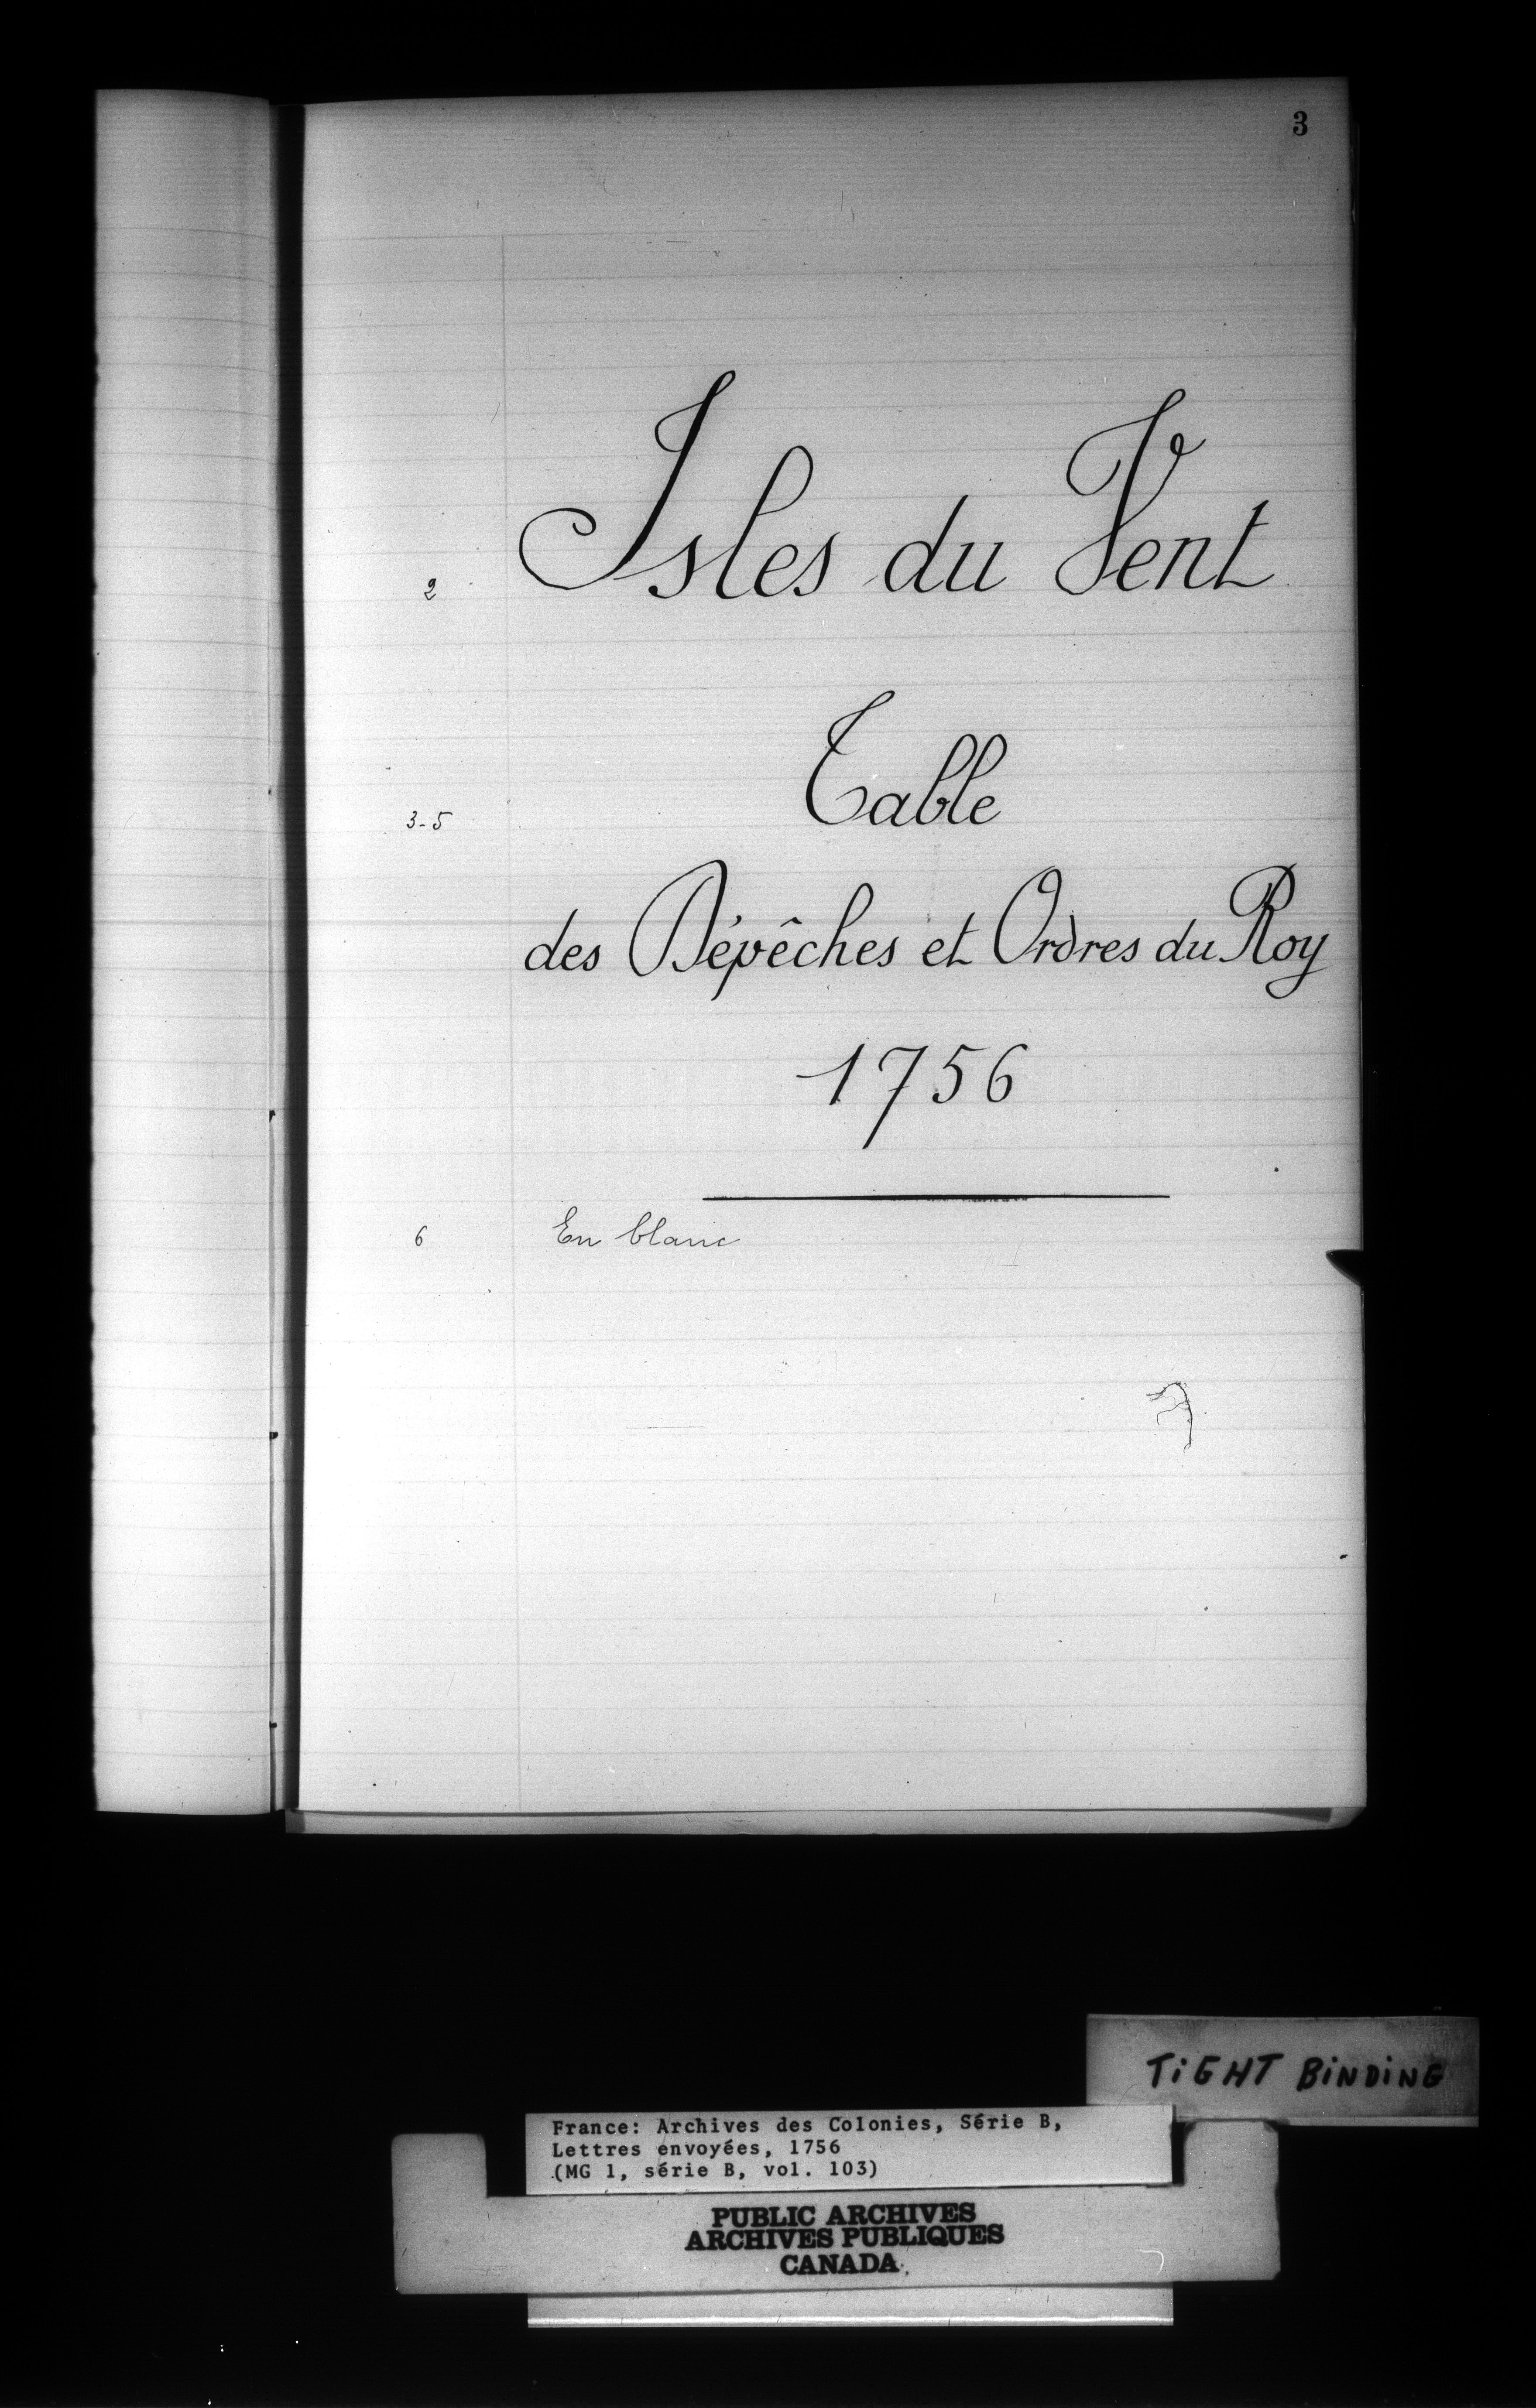 3
2 Isles du Vent
3-5 Table
des Dépêches et Ordres du Roy
1756
6 En blanc
TiGHT BiNDiNG
France: Archives des Colonies, Série B,
Lettres envoyées, 1756
(MG 1, série B, vol. 103)
PUBLIC ARCHIVES
ARCHIVES PUBLIQUES
CANADA